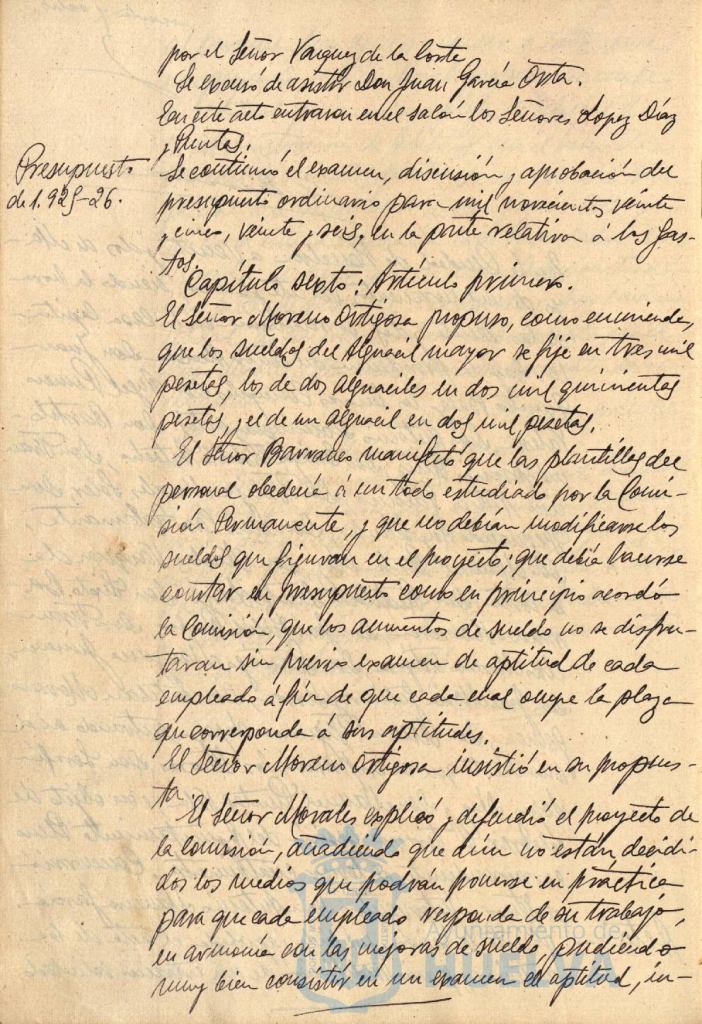 por el Señor Vazquez de la Corte
Se excusó de asistir Don Juan García Orta.
En este acto entraron en el salón los Señores Lopez Díaz
y Puntas.
Presupuesto
de 1.925-26.
Se continuó el examen, discusión y aprobación del
presupuesto ordinario para mil novecientos veinte
y cinco, veinte y seis, en la parte relativa á los Gas-
tos.
Capítulo sexto: Artículo primero.
El Señor Moreno Ortigosa propuso, como enmiendas,
que los sueldos del Alguacil mayor se fije en tres mil
pesetas, los de dos alguaciles en dos mil quinientas
pesetas, y el de un alguacil en dos mil pesetas.
El Señor Barranco manifestó que las plantillas del
personal obedecía á un todo estudiado por la Comi-
sión Permanente, y que no debían modificarse los
sueldos que figuran en el proyecto; que debía hacerse
constar en presupuesto como en principio acordó
la Comisión, que los aumentos de sueldo no se disfru-
taran sin previo examen de aptitud de cada
empleado á fin de que cada cual ocupe la plaza
que corresponda á sus aptitudes.
El Señor Moreno Ortigosa insistió en su propues-
ta.
El Señor Morales explicó y defendió el proyecto de
la Comisión, añadiendo que aún no están decidi-
dos los medios que podrán ponerse en práctica
para que cada empleado responda de su trabajo,
en armonía con las mejoras de sueldo, pudiendo
muy bien consistir en un examen de aptitud, in-
Ayuntamiento de